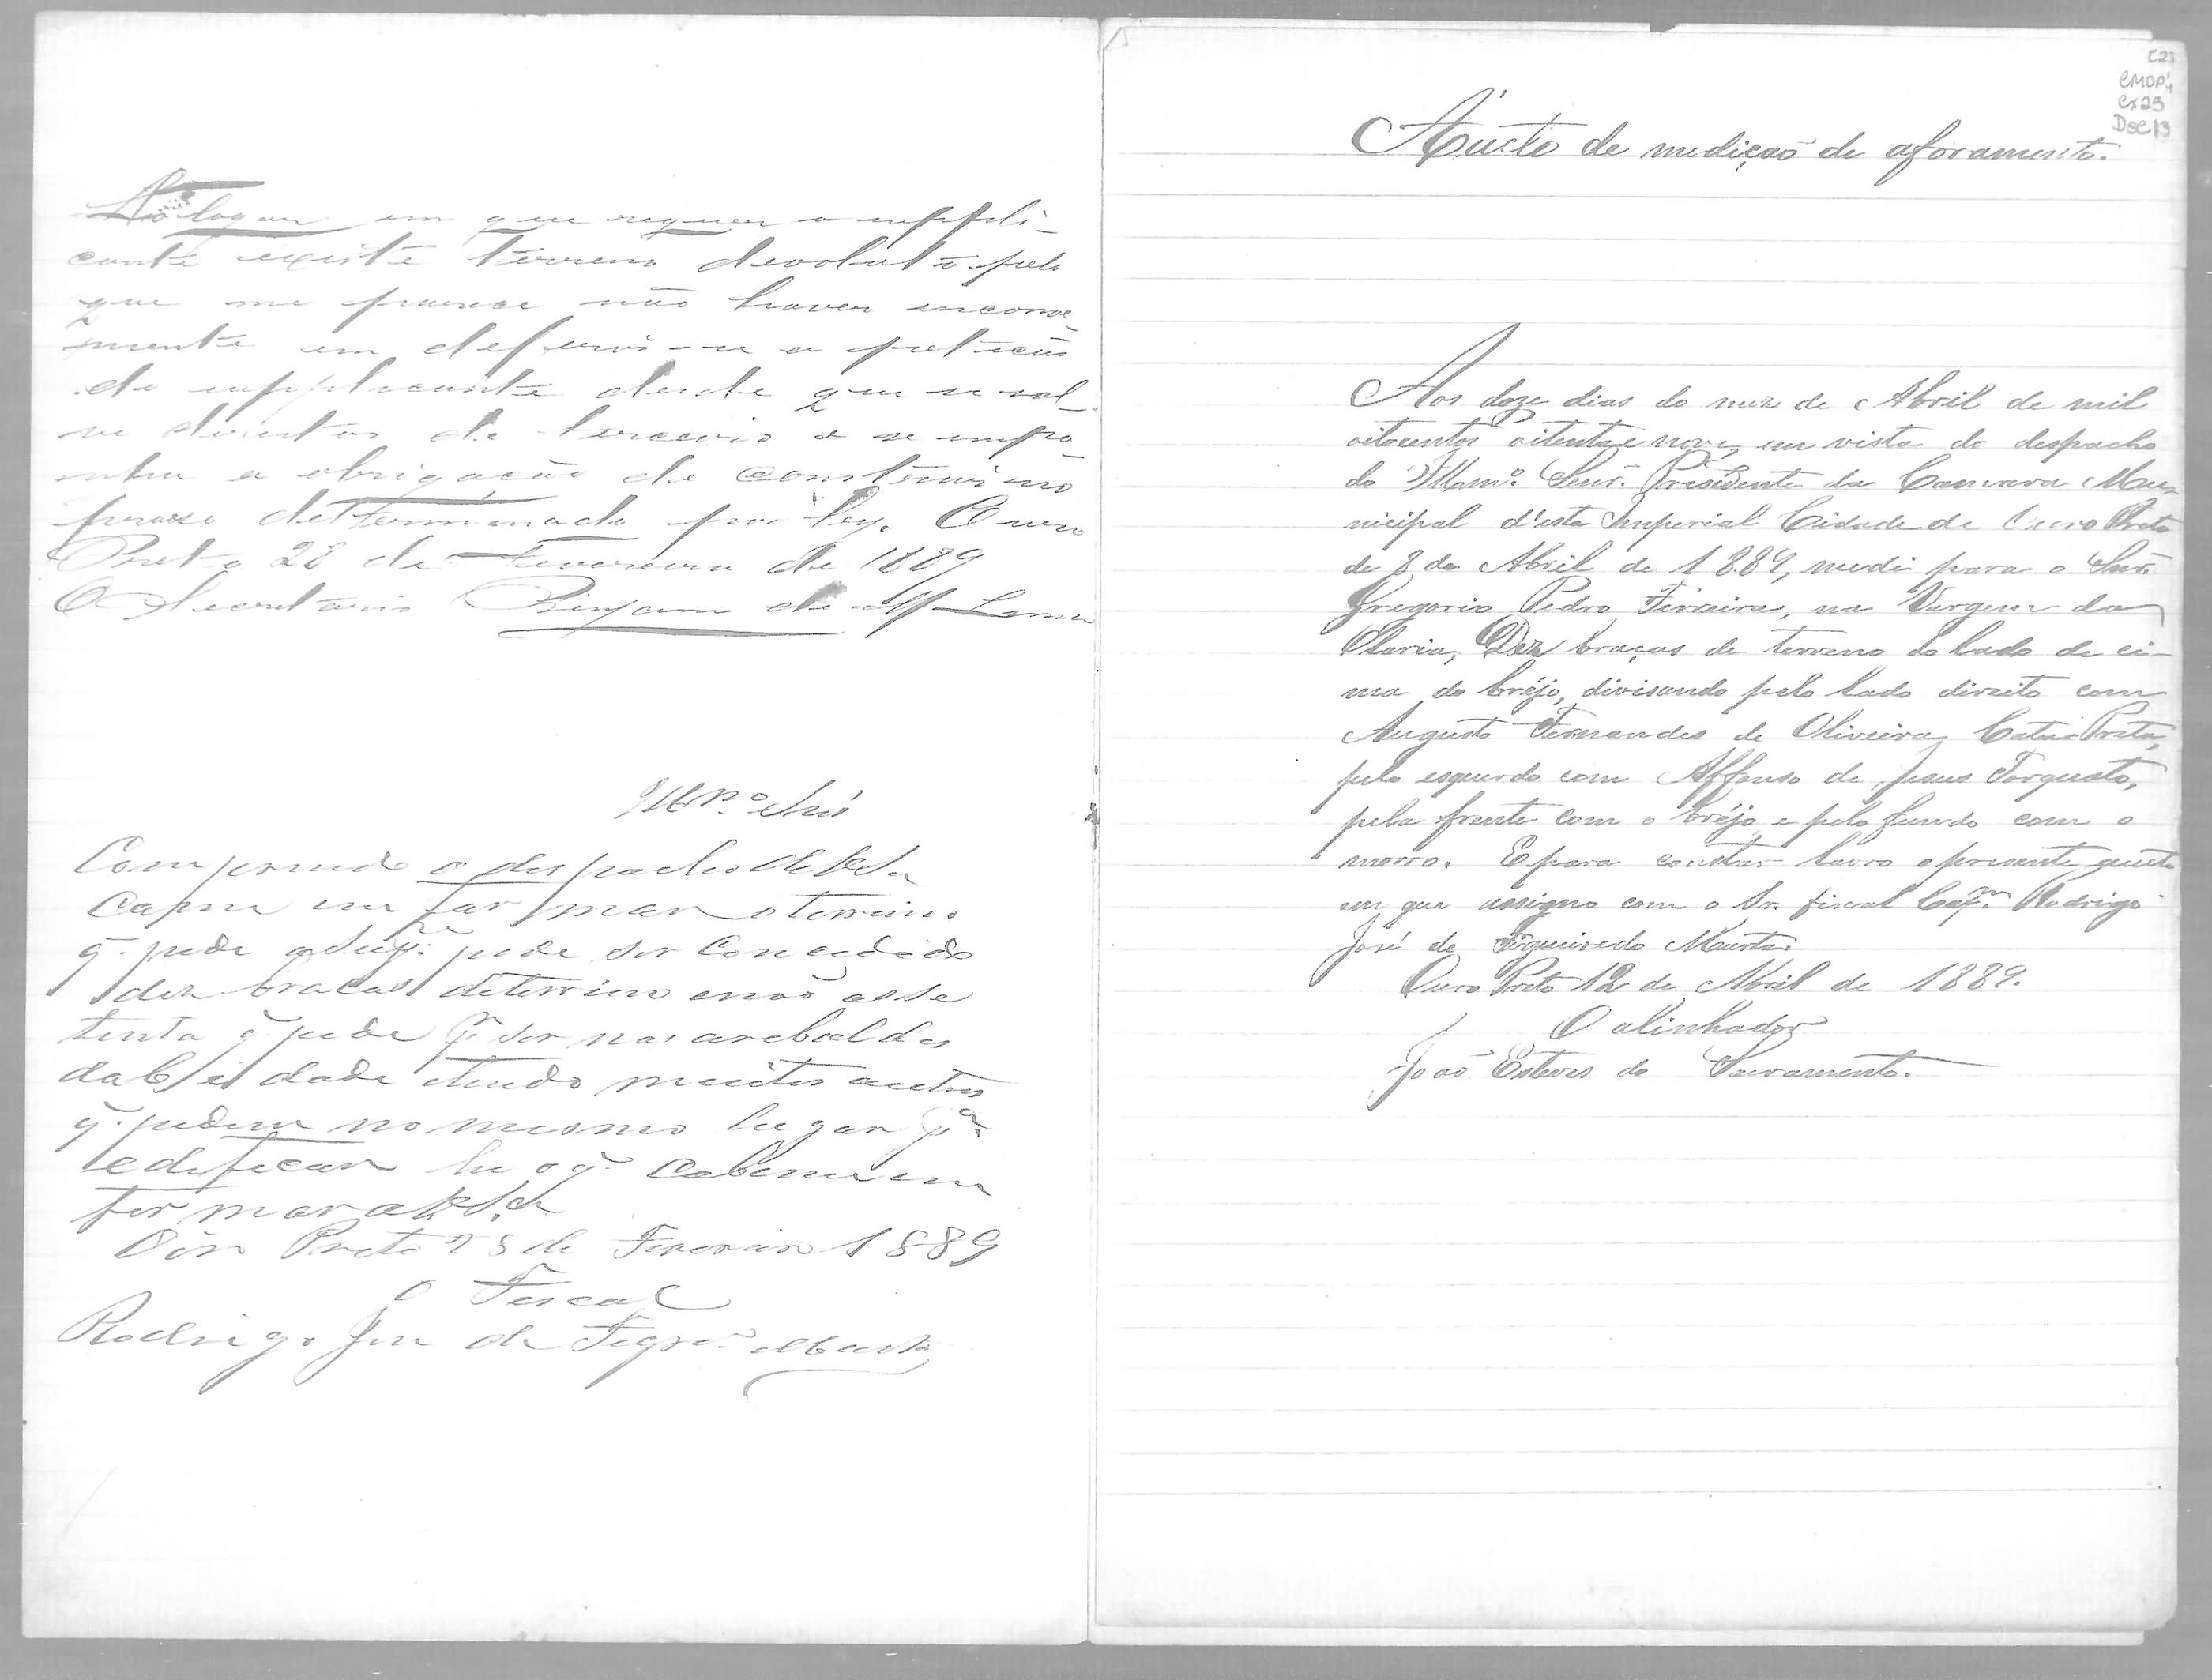 No logar em que requer o suppli-
cante existe terreno devoluto pelo
que me parece não haver inconve-
niente em deferir-se a petição
do supplicante desde que se sal-
ve direitos de terceiro e se impo-
nha a obrigação de construir no
praso determinado por ley. Ouro
Preto 28 de Fevereiro de 1889
O Secretario Benjamim de Lima
Illmo Snr
Comprindo o despacho de VSa
em far mar o terreino
q. pede o Supe. pode ser Concedido
dez bracas deterreino enaõ asse
tenta q. pede pr. ser nos arebaldes
da Cidade etendo muitos outros
q. pedem no mesmo lugar pa.
edificar he o q. Cabeme em
for mar a VSa
Preto 25 de Fevereiro 1889
O Fescal
Rodrigo Jose de Figrdo. Mourta
C23
CMOP,
Cx25
Doc 13
Aucto de mediçaõ de aforamento.
Aos doze dias do mez de Abril de mil
oitocentos oitenta e nove, em vista do despacho
do Illmo. Snr. Presidente da Camara Mu-
nicipal d'esta Imperial Cidade de Ouro Preto
de 8 de Abril de 1889, medi para o Snr.
Gregorio Pedro Ferreira, na Vargem da
Olaria, Dez braças de terreno do lado de ci-
ma do bréjo, divisando pelo lado direito com
Augusto Fernandes de Oliveira Catta Preta,
pelo esquerdo com Affonso de Jesus Torquato,
pela frente com o bréjo e pelo fundo com o
morro. E para constar lavro o presente aucto
em que assigno com o Sr. fiscal Capm. Rodrigo
José de Figueiredo Mourta.
Ouro Preto 12 de Abril de 1889.
O alinhador
Joaõ Esteves do Sacramento.